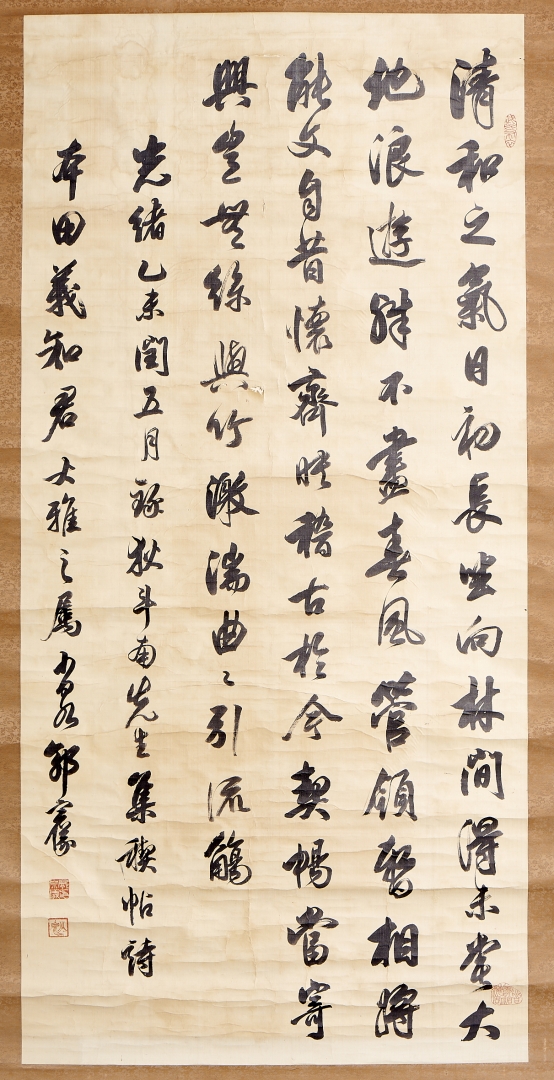 清和之氣日初長坐向林間得未嘗大
地浪遊殊不盡春風管領暫相將
能文自昔懷齊時稽古於今契暢當寄
興豈無絲與竹激湍曲〻引流觴
光緒乙未閏五月錄狄斗南先生集禊帖詩
本田義知君大雅之屬 少泉郭